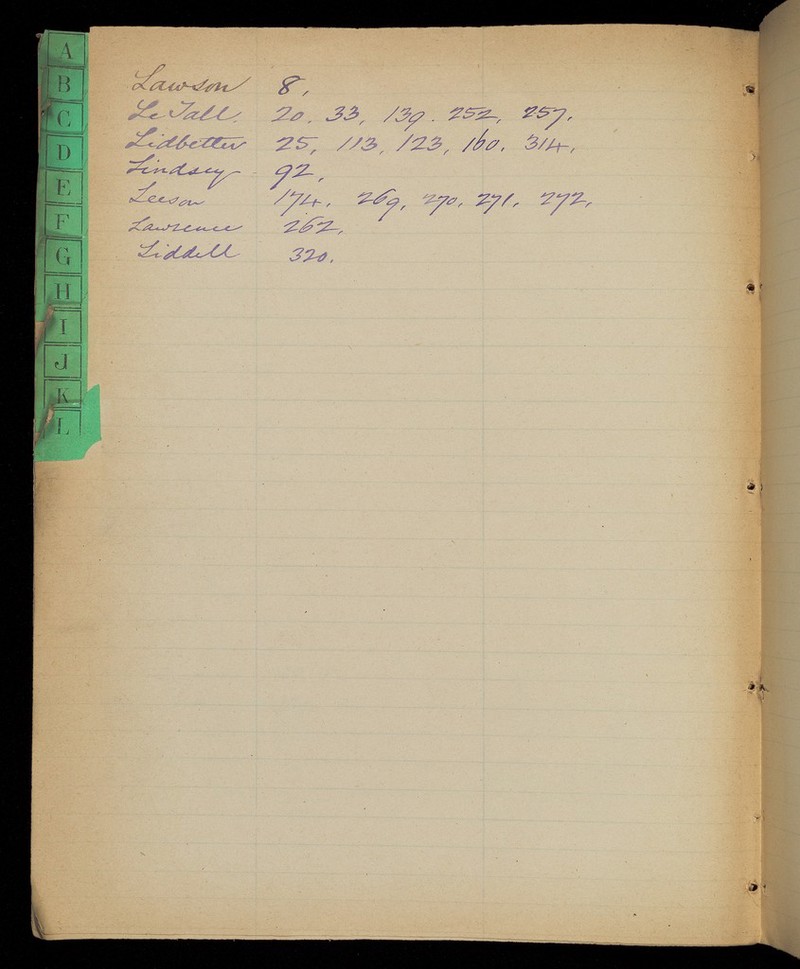 A
B
C
D
E
F
G
H
I
J
K
L
Lawson 8,
Le Tall. 20. 33, 139. 252, 257,
Lidbetter 25, 113, 123, 160, 314,
Lindsey 92,
Leeson 174, 269, 270, 271, 272,
Lawrence 262,
Liddell 320.